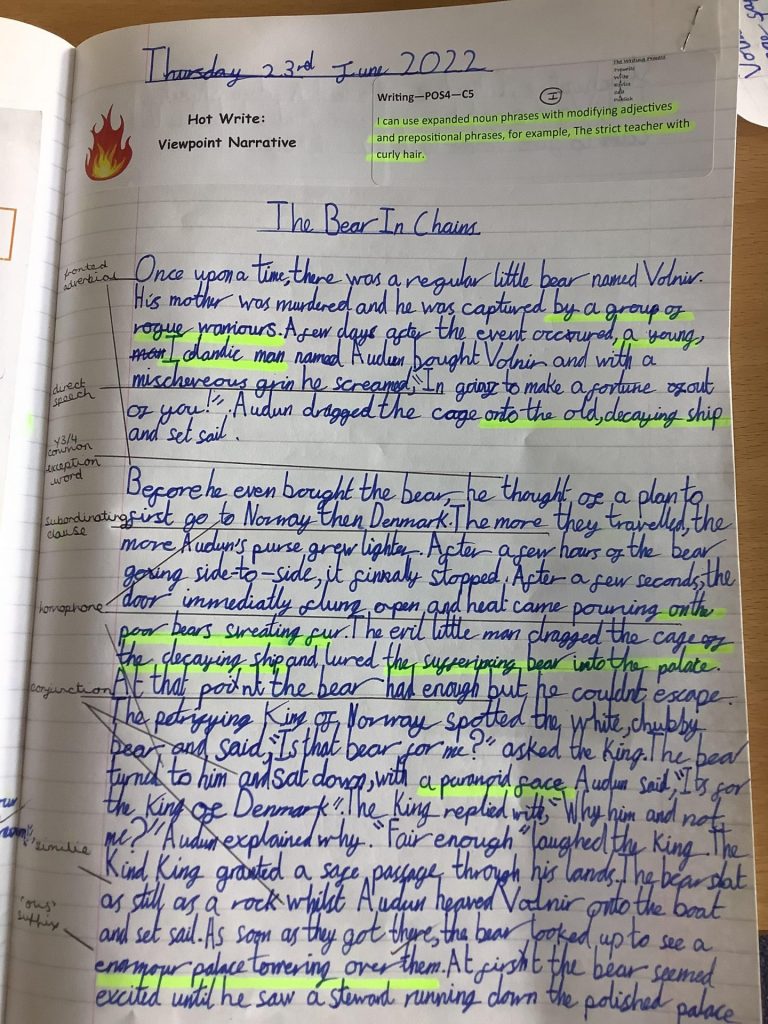 Thursday 23rd June 2022
The Writing Process
Hot Write:
Viewpoint Narrative
Writing—POS4—C5
I
I can use expanded noun phrases with modifying adjectives
and prepositional phrases, for example, The strict teacher with
curly hair.
The Bear In Chains
fronted
adverbial
Once upon a time, there was a regular little bear named Volnir.
His mother was murdered and he was captured by a group of
rogue warriours. A few days after the event occured, a young,
man Islandic man named Audun bought Volnir and with a
direct
speech
mischereous grin he screamed, "Im going to make a fortune of out
of you!". Audun dragged the cage onto the old, decaying ship
and set sail.
Y3/4
common
exception
word
Before he even bought the bear, he thought of a plan to
subordinating
clause
first go to Norway then Denmark. The more they travelled, the
more Audun's purse grew lighter. After a few hours of the bear
going side-to-side, it finnally stopped. After a few seconds, the
homophone
door immediatly flung open and heat came pouring on the
poor bears sweating fur. The evil little man dragged the cage of
the decaying ship and lured the sufferiping bear into the palace.
conjunction
At that point the bear had enough but he couldnt escape.
The petrifying King of Norway spotted the white, chubby
bear and said, "Is that bear for me?" asked the King. The bear
turnd to him and sat down, with a paranoid face. Audun said, "Its for
the King of Denmark". The King replied with, "Why him and not
me?" Audun explained why. "Fair enough" laughed the King. The
similie
Kind King granted a safe passage through his lands. The bear sat
as still as a rock whilst Audun heaved Volnir onto the boat
'ous'
suffix
and set sail. As soon as they got there, the bear looked up to see a
enormour palace towering over them. At firsht the bear seemed
excited until he saw a steward running down the polished palace